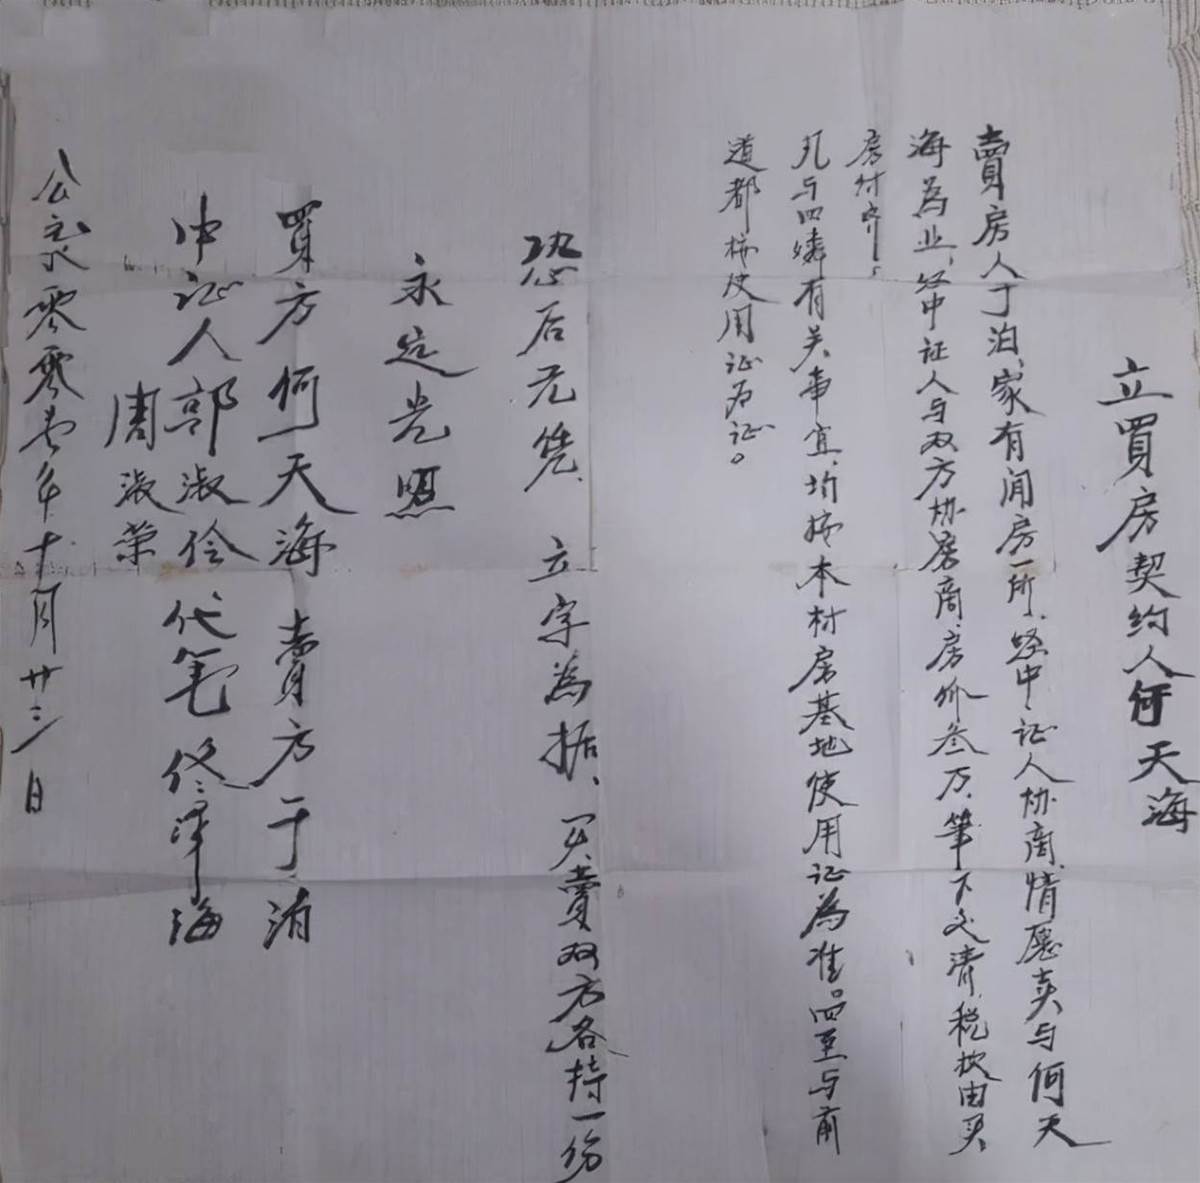 立買房契约人何天海
賣房人于泊、家有闲房一所、经中证人协商、情愿卖与何天
海為业、经中证人与双方协商、房价叁万、筆下交清、税款由买
房付齐。
凡与四磷有关事宜、均按本村房基地使用证為准。四至与前
道都按使用证为证。
恐后无凭、立字為据、买賣双方各持一份
永远光照
買方何天海 賣方于泊
中证人郭淑伶 代笔佟泽海
周淑荣
公元零零年十月廿三日